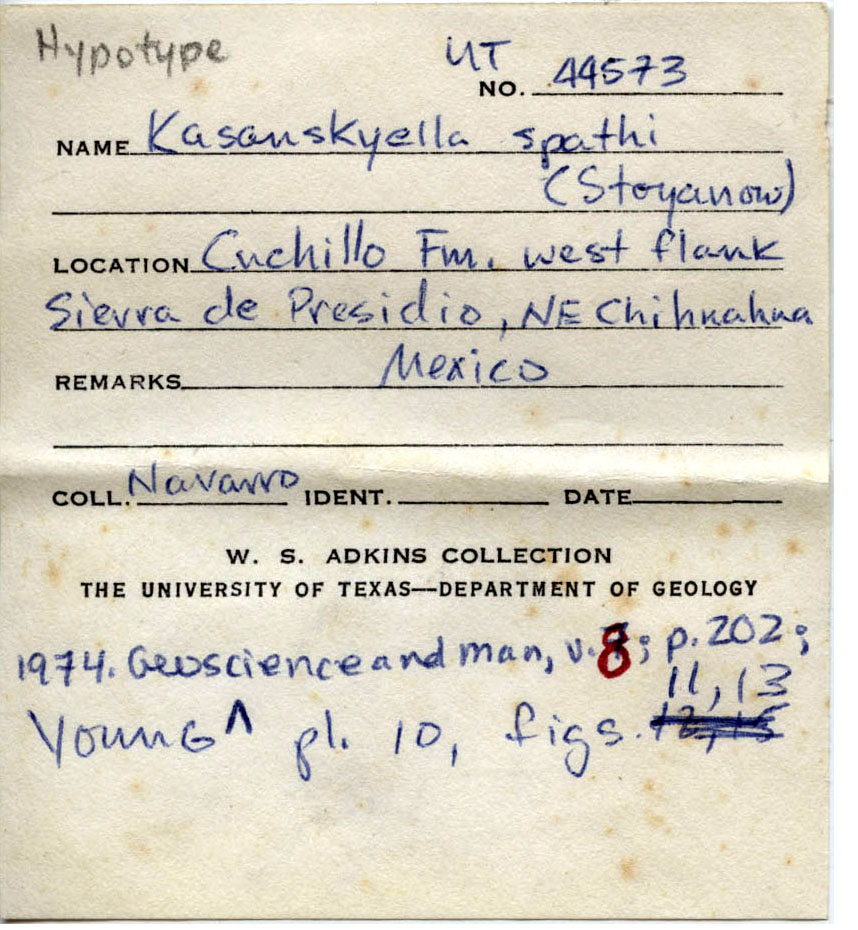 Hypotype
UT
NO. 44573
NAME Kasanskyella spathi
(Stoyanow)
LOCATION Cuchillo Fm. west flank
Sierra de Presidio, NE Chihuahua
Mexico
REMARKS
COLL. Navarro IDENT. DATE
W. S. ADKINS COLLECTION
THE UNIVERSITY OF TEXAS—DEPARTMENT OF GEOLOGY
1974. Geoscience and man, v. 8; p. 202;
11, 13
Young ^ pl. 10, figs.